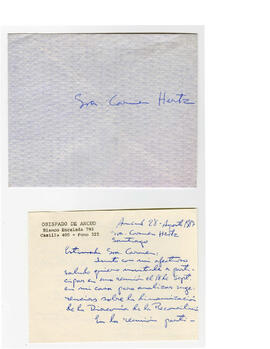 Sra. Carmen Hertz
OBISPADO DE ANCUD
Blanco Encalada 793
Casilla 400 - Fono 322
Ancud 28-Agosto 1987
Sra. Carmen Hertz
Santiago
Estimada Sra. Carmen:
Junto con mi afectuoso
saludo quiero invitarla a parti-
cipar en una reunión el 10 de Sept.
en mi casa para analizar suge-
rencias sobre la
de la de la
En la reunión parti-